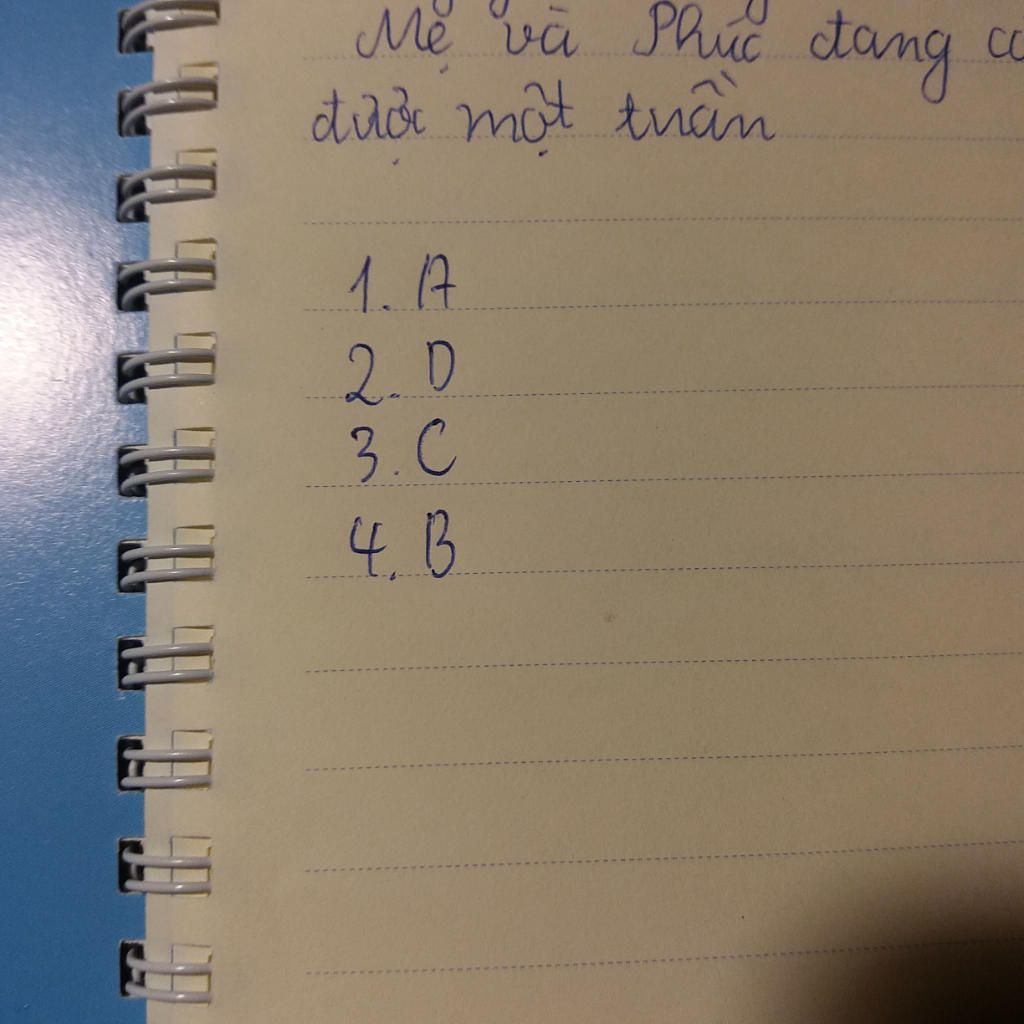 Mẹ và Phúc đang
được một tuần
1. A
2. D
3. C
4. B